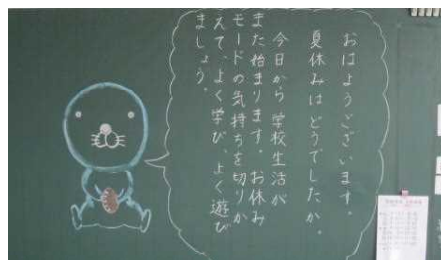 おはようございます。
夏休みはどうでしたか。
今日から学校生活が
また始まります。お休み
モードの気持ちを切りか
えて、よく学び、よく遊び
ましょう。